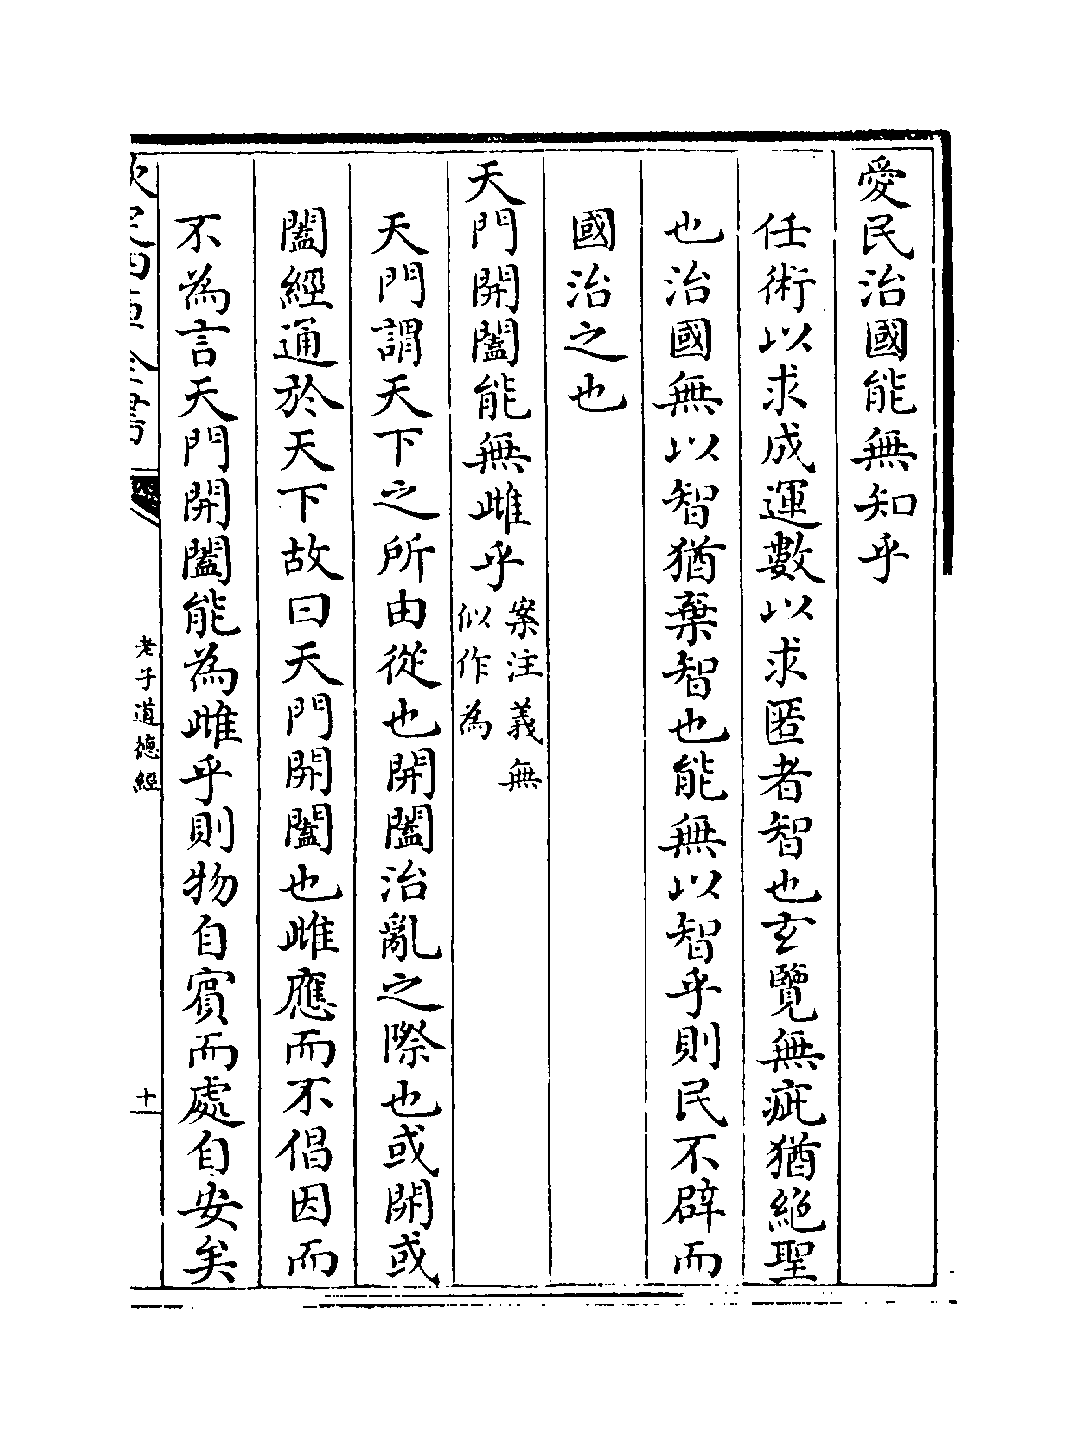 愛民治國能無知乎
任術以求成運數以求匿者智也玄覽無疵猶絶聖
也治國無以智猶棄智也能無以智乎則民不辟而
國治之也
天門開闔能無雌乎
案注義無
似作為
天門謂天下之所由從也開闔治亂之際也或開或
闔經通於天下故曰天門開闔也雌應而不倡因而
不為言天門開闔能為雌乎則物自賔而處自安矣
欽定四庫全書
老子道德經
十